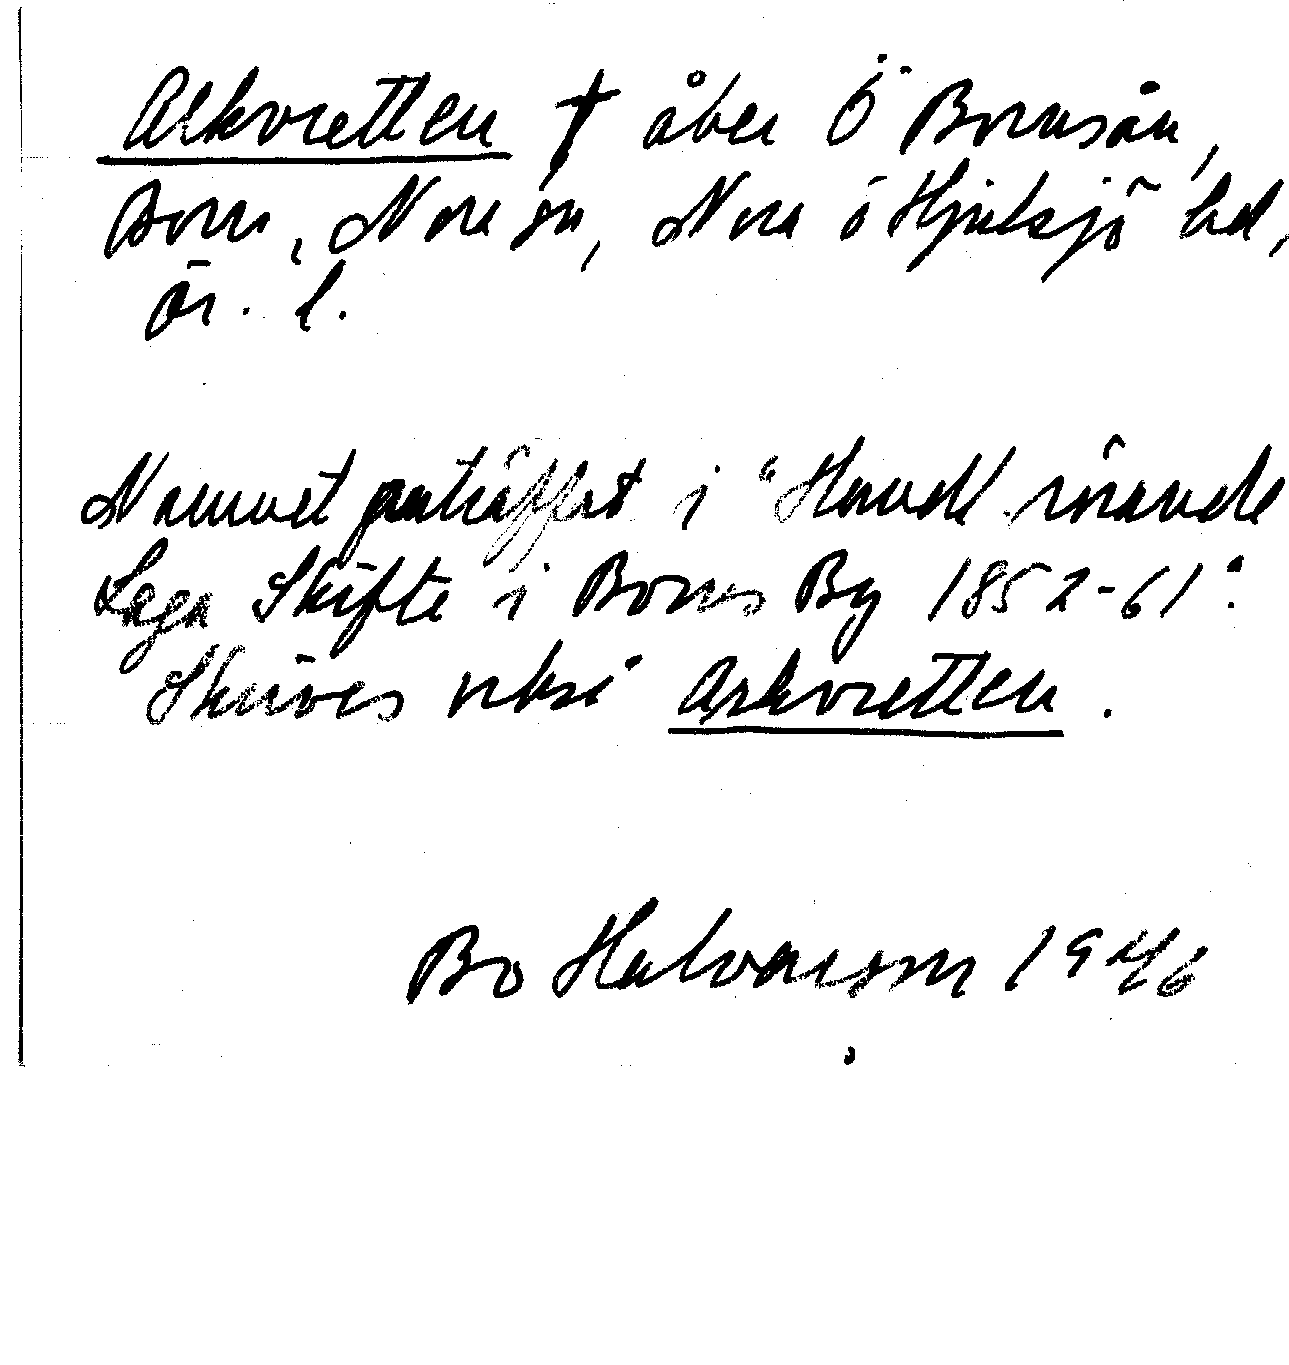 Alkvretten † åker Ö Bornsån,
Born, Nora sn, Nora o Hjulsjö hd,
ör. l.
Namnet påträffat i "Handl rörande
Laga Skifte i Borns By 1852-61".
Skrives också Arkvretten.
Bo Halvarsson 1946